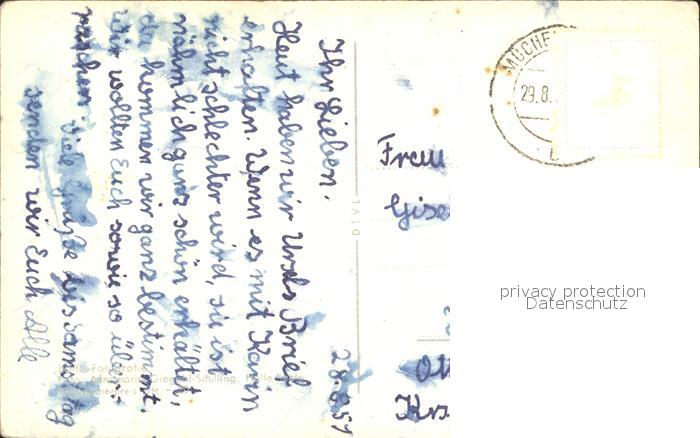 28.8.59
Ihr Lieben.
Heut haben wir Ursels Brief
erhalten. Wenn es mit Karin
nicht schlechter wird, sie ist
nähmlich ganz schön erkältet,
kommen wir ganz bestimmt.
Wir wollten Euch sowieso über-
raschen.
Viele Grüße bis Samstag
senden wir Euch Alle
Frau
Gise
Krs
MÜCHE
29.8.
privacy protection
Datenschutz